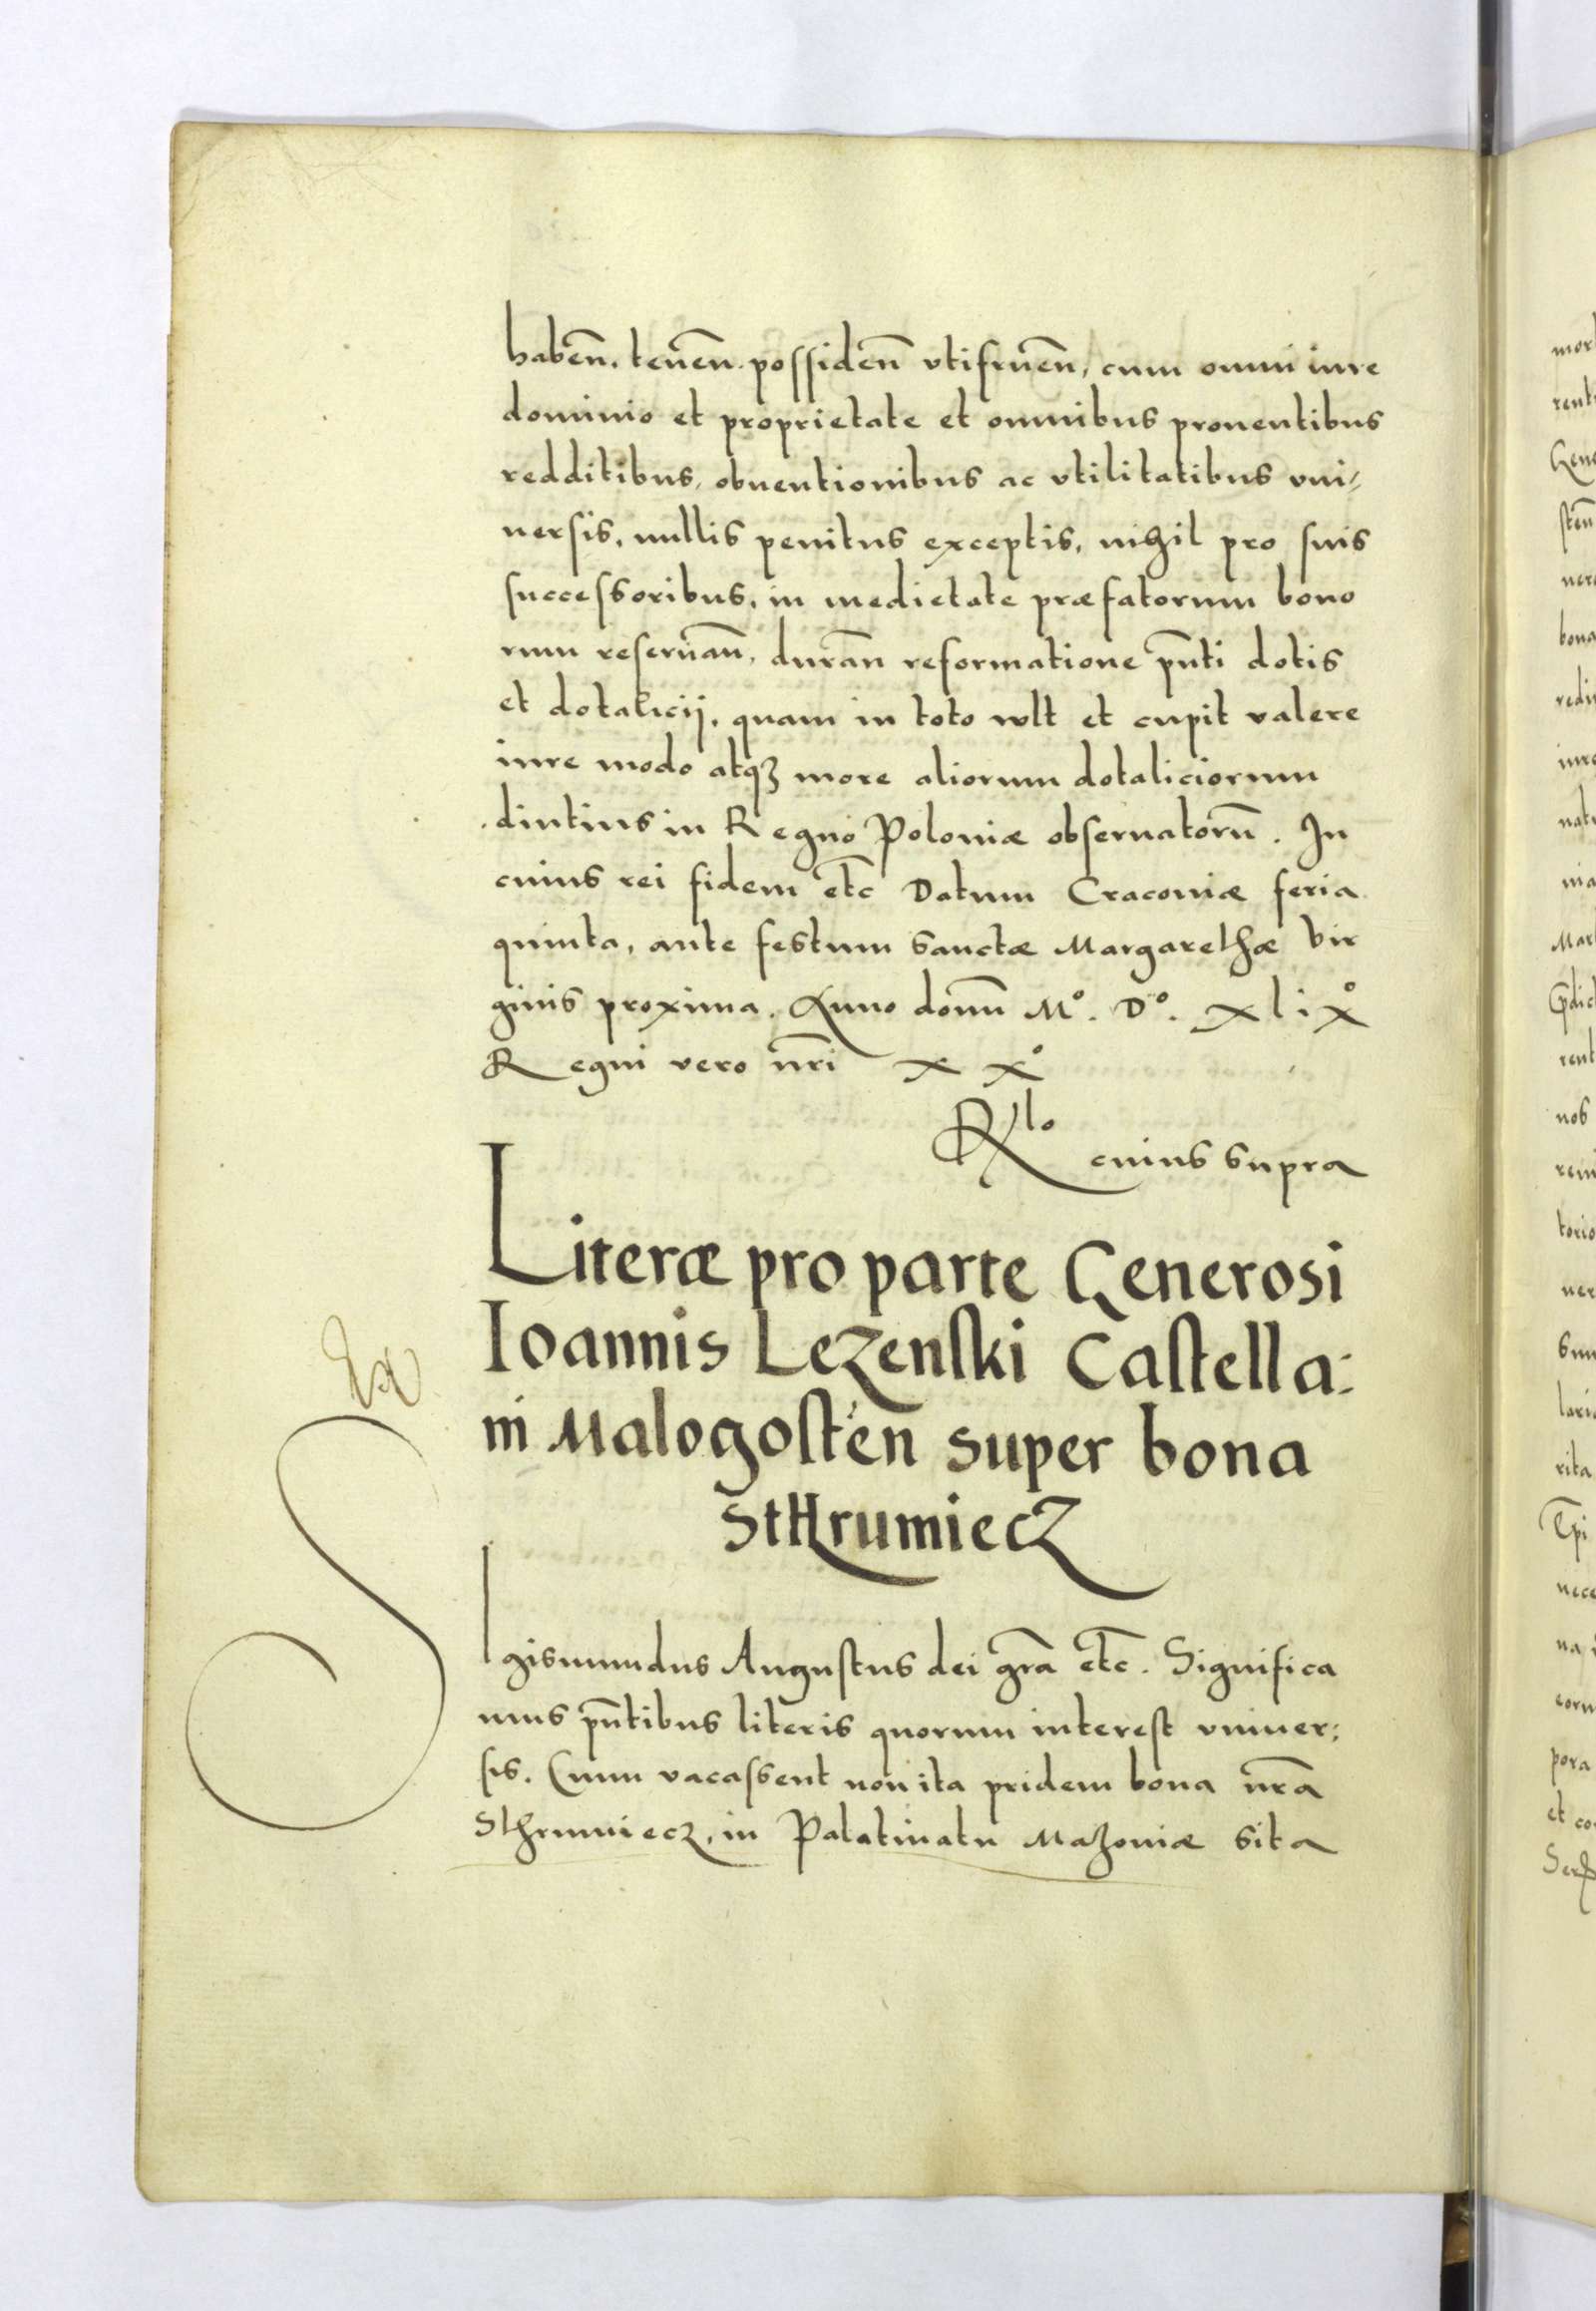 habeñ. teneñ. possideñ vtifrueñ, cum omni iure
dominio et proprietate et omnibus prouentibus
redditibus, obuentionibus ac vtilitatibus vni-
uersis, nullis penitus exceptis, nihil pro suis
successoribus, in medietate præfatorum bono
rum reseruañ, durañ reformatione pñti dotis
et dotalicij, quam in toto wlt et cupit valere
iure modo atqꝫ more aliorum dotaliciorum
diutius in Regno Poloniæ obseruatorũ. In
cuius rei fidem etc̃ Datum Cracouiæ feria
quinta, ante festum Sanctæ Margarethæ Vir
ginis proxima. Anno domñ Mº. Dº. xlixº
Regni vero nr̃i xxº
Rlo cuius supra
Literæ pro parte Generosi
Ioannis Lezenski Castella:
ni Malogosteñ super bona
StHrumiecz
Ex
SIgismundus Augustus dei gr̃a etc̃. Significa
mus pñtibus literis quorum interest vniuer:
sis. Cum vacassent non ita pridem bona nr̃a
Sthrumiecz, in Palatinatu Mazouiæ sita